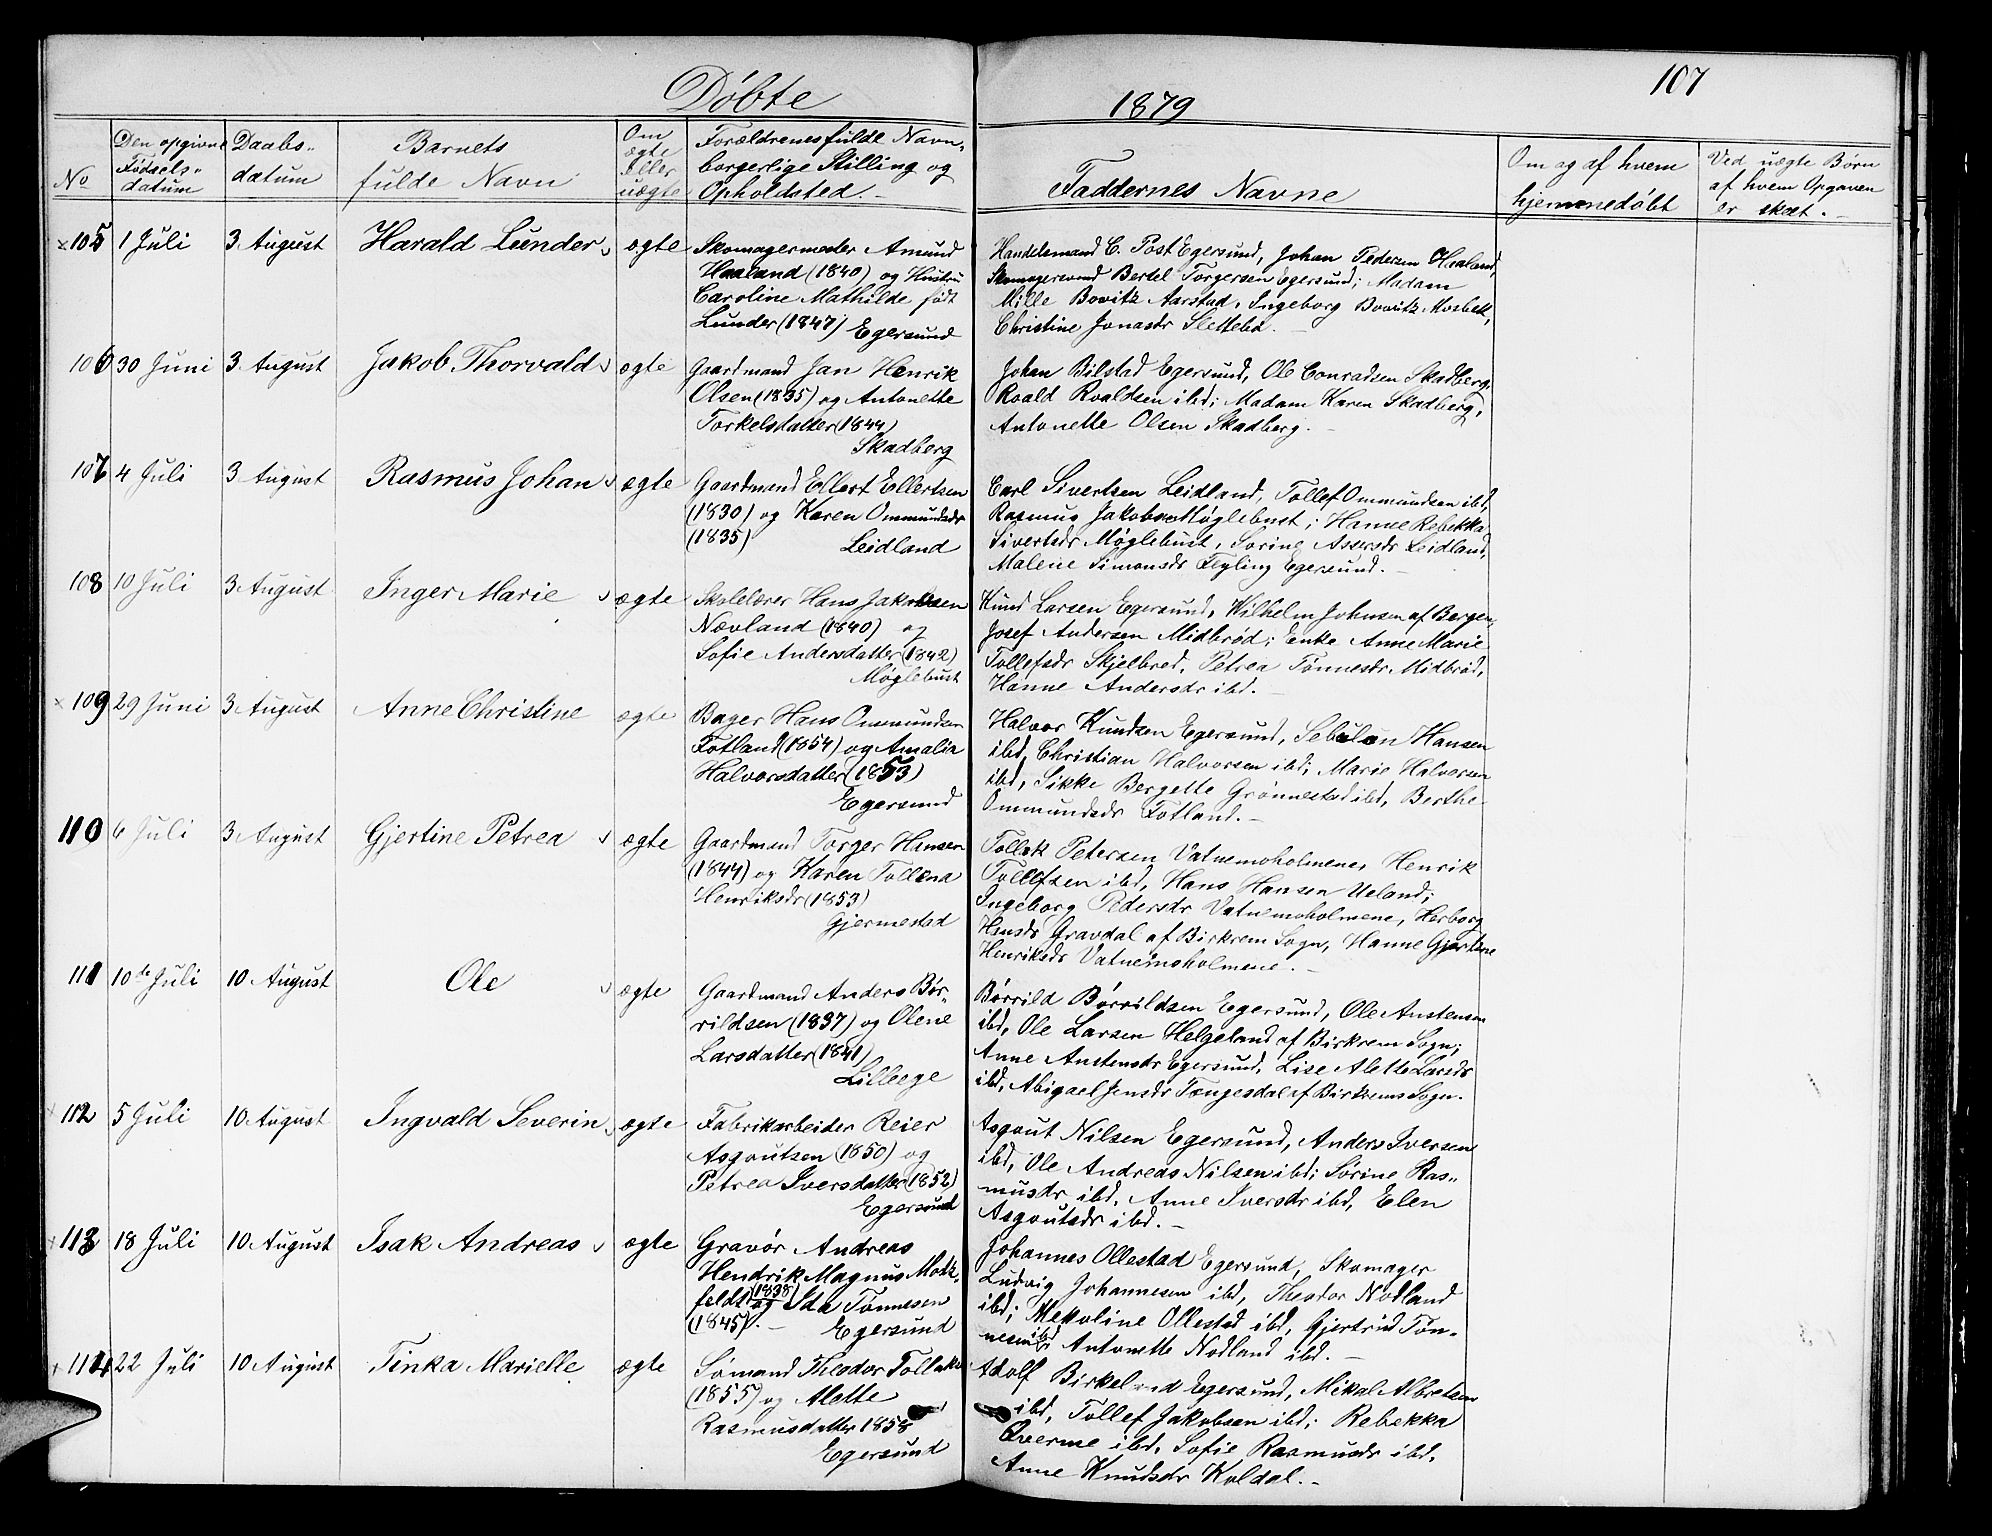 Døbte
1879
107
No
Den opgivne Fødsels-datum
Daabs-datum
Barnets fulde Navn
Om ægte eller uægte
Forældrenes fulde Navn, borgerlige Stilling og Opholdsted.-
Faddernes Navne
Om og af hvem hjemmedøbt
Ved uægte Børn af hvem Opgaven er skæt.-
105 1 Juli 3 August Harald Lunder ægte
Skomagermester Amund
Haaland (1840) og Hustru
Caroline Mathilde født
Lunder (1847) Egersund
Handelsmand C. Post Egersund, Johan Pedersen Haaland,
Skomagersvend Bertel Torgersen Egersund; Madam
Mille Bowitz Aarstad, Ingeborg Bowitz Mosbek,
Christine Jonasdr Slettebø.-
106 30 Juni 3 August Jakob Thorvald ægte
Gaardmand Jan Henrik
Olsen (1835) og Antonette
Torkelsdatter (1844)
Skadberg
Johan Bilstad Egersund, Ole Conradsen Skadberg,
Roald Roaldsen ibd; Madam Karen Skadberg,
Antonette Olsen Skadberg.-
107 4 Juli 3 August Rasmus Johan ægte
Gaardmand Ellert Ellertsen
(1830) og Karen Ommundsdr
(1835) Leidland
Carl Sivertsen Leidland, Tollef Ommundsen ibd,
Rasmus Jakobsen Møglebust; Hanne Rebekka
Sivertsdr Møglebust, Sorine Assersdr Leidland,
Malene Simonsdr Fejling Egersund.-
108 10 Juli 3 August Inger Marie ægte
Skolelærer Hans Jakobsen
Nævland (1840) og
Sofie Andersdatter (1842)
Møglebust
Knud Larsen Egersund, Wilhelm Johnsen af Bergen,
Josef Andersen Midbrød; Enke Anne Marie
Tollefsdr Skjelbred, Petrea Tønnesdr Midbrød,
Hanne Andersdr ibd.-
109 29 Juni 3 August Anne Christine ægte
Bager Hans Ommundsen
Fotland (1854) og Amalia
Halvorsdatter (1853)
Egersund
Halvor Knudsen Egersund, Sebulon Hansen
ibd, Christian Halvorsen ibd; Marie Halvorsen
ibd, Sikke Bergette Grønnestad ibd, Berthe
Ommundsdr Fotland.-
110 6 Juli 3 August Gjertine Petrea ægte
Gaardmand Torger Hansen
(1844) og Karen Tollena
Henriksdr (1853)
Gjermestad
Tollak Petersen Vatnemoholmene, Henrik
Tollefsen ibd, Hans Hansen Ueland;
Ingeborg Pedersdr Vatnemoholmene, Herborg
Hansdr Gravdal af Birkrem Sogn, Hanne Gjertine
Henriksdr Vatnemoholmene.-
111 10de Juli 10 August Ole ægte
Gaardmand Anders Bør-
rildsen (1837) og Olene
Larsdatter (1841)
Lilleege
Børrild Børrildsen Egersund, Ole Austensen
ibd, Ole Larsen Helgeland af Birkrem Sogn;
Anne Austensdr Egersund, Lise Alette Larsdr
ibd, Abigael Jensdr Tengesdal af Birkrems Sogn.
112 5 Juli 10 August Ingvald Severin ægte
Fabrikarbeider Reier
Asgautsen (1850) og
Petrea Iversdatter (1852)
Egersund
Asgout Nilsen Egersund, Anders Iversen
ibd, Ole Andreas Nilsen ibd; Sørine Ras-
musdr ibd, Anne Iversdr ibd, Elen
Asgoutsdr ibd.-
113 18 Juli 10 August Isak Andreas ægte
Gravør Andreas
Hendrik Magnus Motz-
feldt (1838) og Ida Tønnesen
(1845).- Egersund
Johannes Ollestad Egersund, Skomager
Ludvig Johannesen ibd, Theodor Nodland
ibd; Mekoline Ollestad ibd, Gjertrud Tøn-
nesen ibd, Antonette Nodland ibd.-
114 22 Juli 10 August Tinka Marielle ægte
Sømand Theodor Tollaks
(1855) og Alette
Rasmusdatter 1858
Egersund
Adolf Birkeland Egersund, Mikal Albretsen
ibd, Tollef Jakobsen ibd; Rebekka
Qverme ibd, Sofie Rasmusdr ibd,
Anne Knudsdr Koldal.-